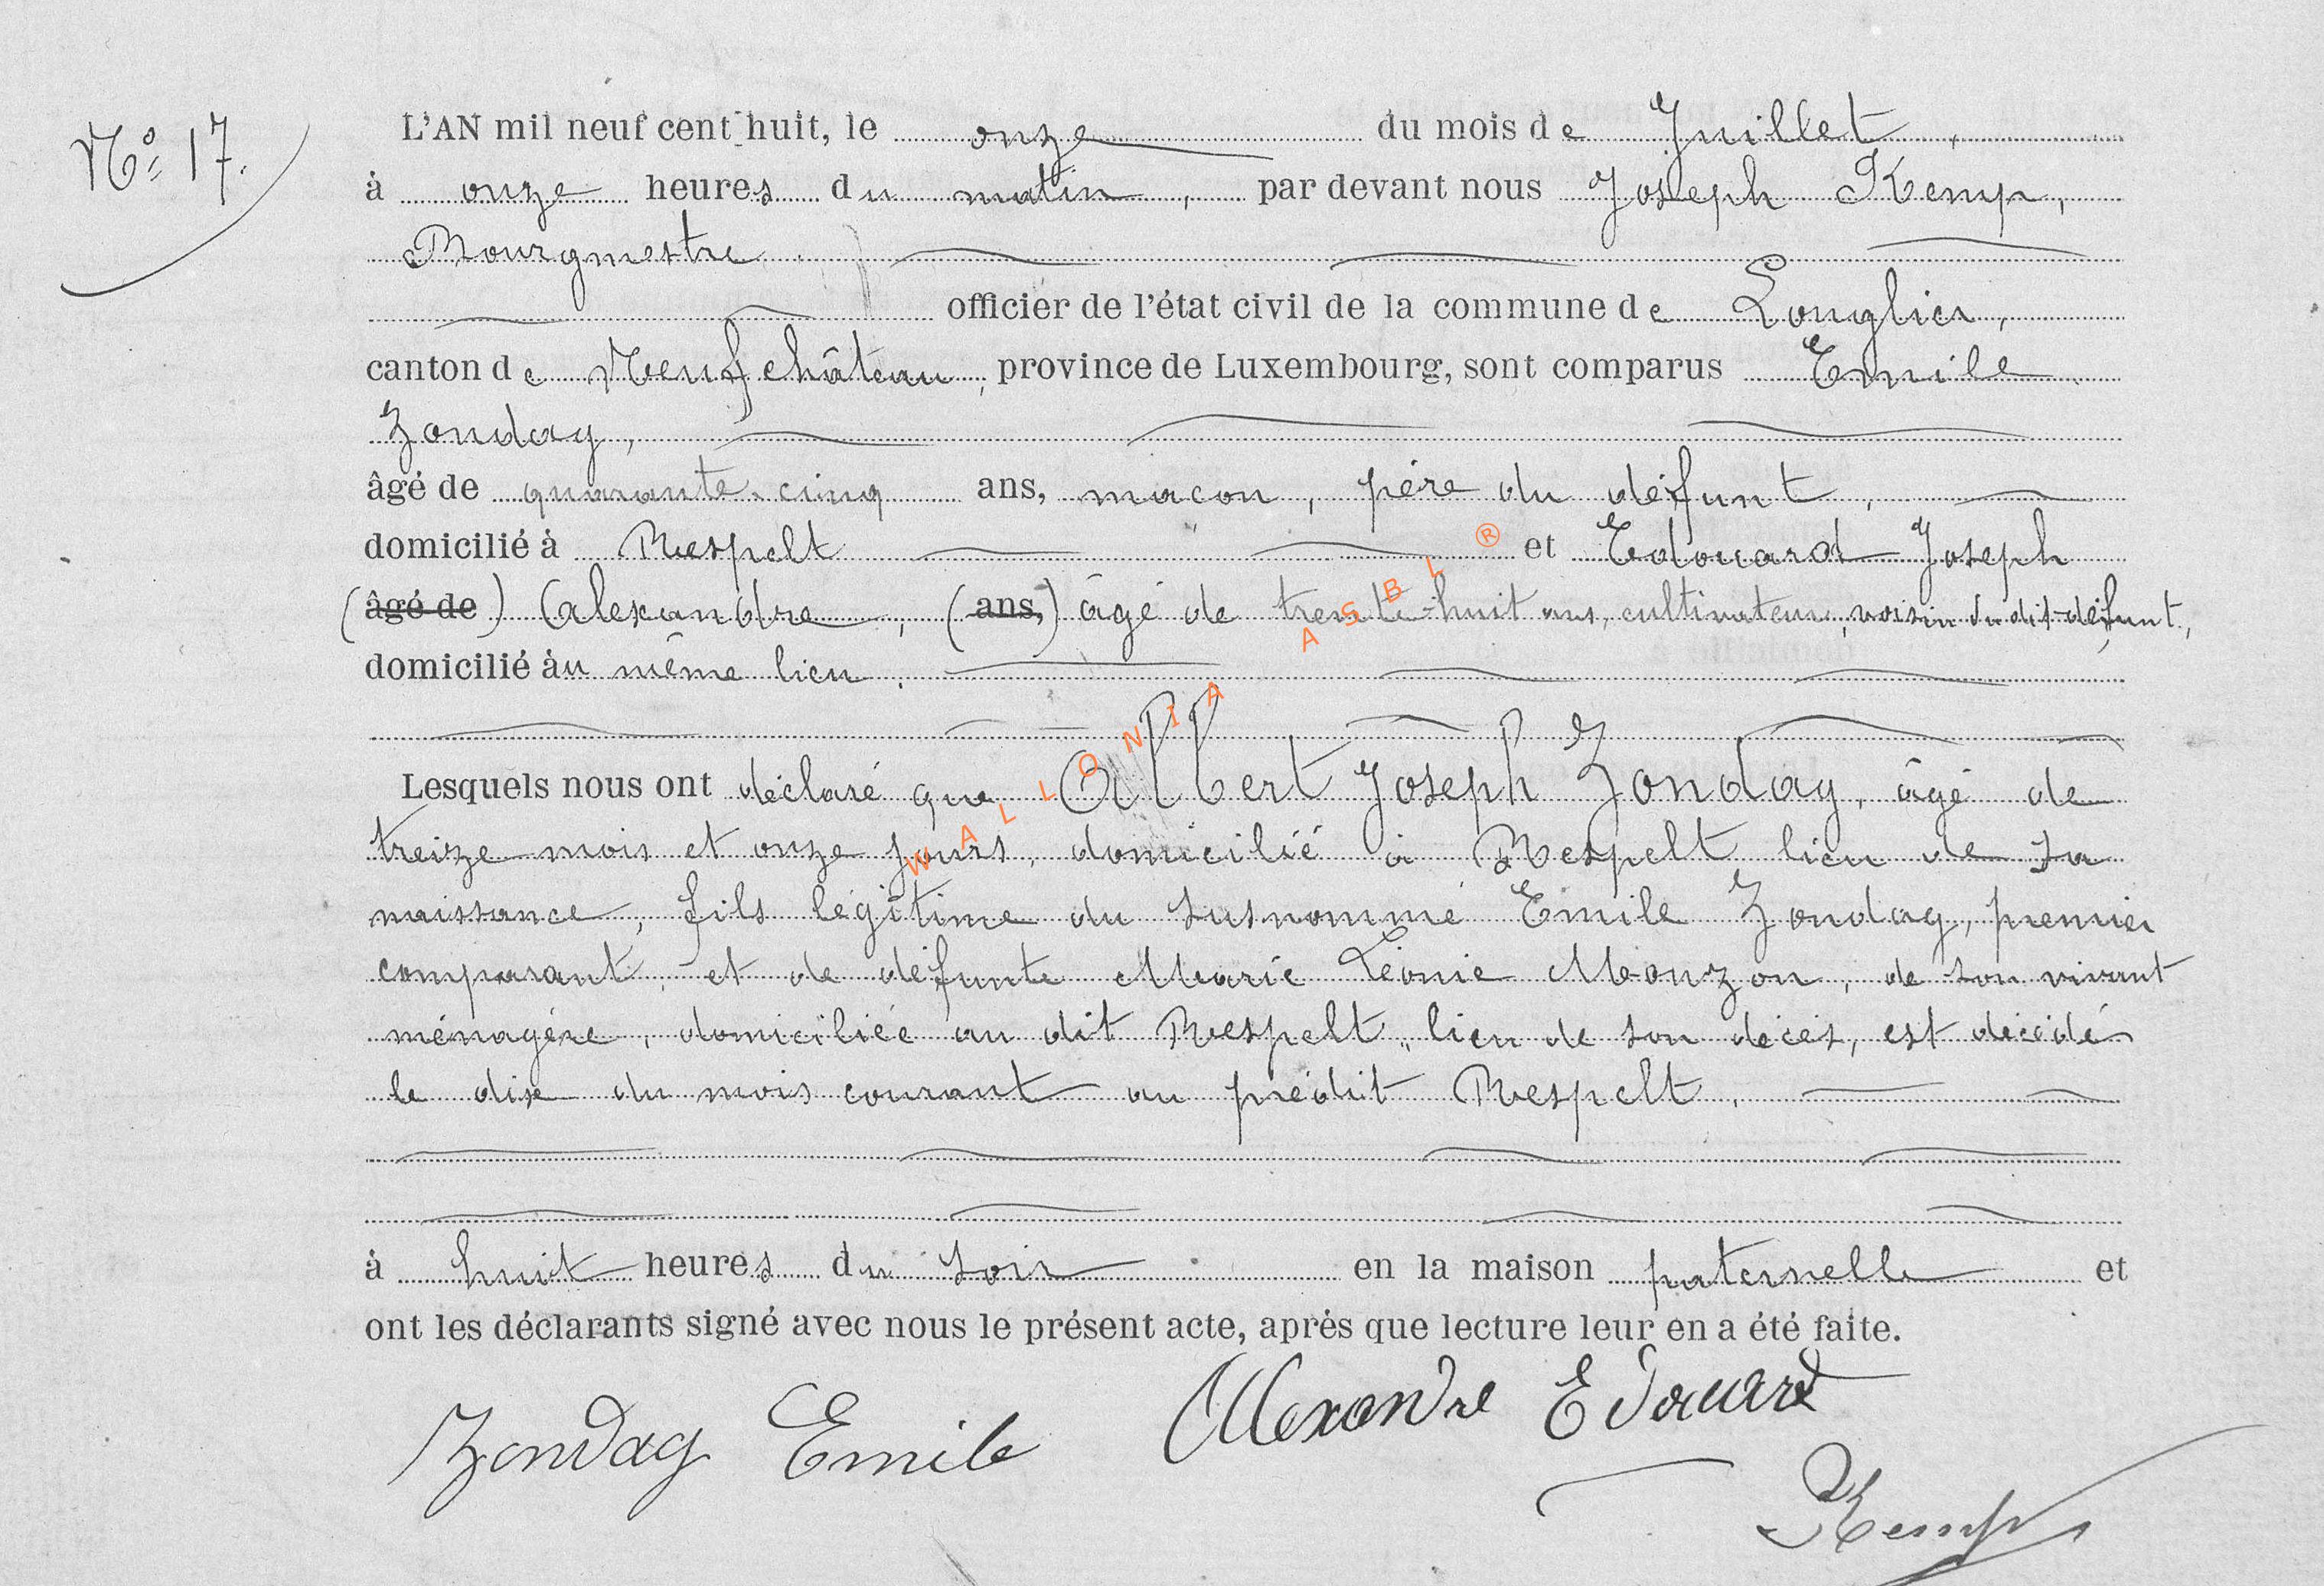 Nº 17.
L'AN mil neuf cent huit, le onze du mois de Juillet,
à onze heures du matin, par devant nous Joseph Kemp,
Bourgmestre
officier de l'état civil de la commune de Longlier,
canton de Neufchâteau, province de Luxembourg, sont comparus Emile
Zonday,
âgé de quarante-cinq ans, maçon, père du défunt,
domicilié à Respelt et Edouard Joseph
(âgé de) Alexandre, (ans,) âgé de trente-huit ans, cultivateur, voisin du dit défunt,
domicilié àu même lieu.
Lesquels nous ont déclaré que Albert Joseph Zonday, âgé de
treize mois et onze jours, domicilié à Respelt lieu de sa
naissance, fils légitime du susnommé Emile Zonday, premier
comparant, et de défunte Marie Léonie Mouzon, de son vivant
ménagère, domiciliée au dit Respelt, lieu de son décès, est décédé
le dix du mois courant au prédit Respelt.
à huit heures du soir en la maison paternelle et
ont les déclarants signé avec nous le présent acte, après que lecture leur en a été faite.
Zonday Emile Alexandre Edouard
Kemp
WALLONIA ASBL ®